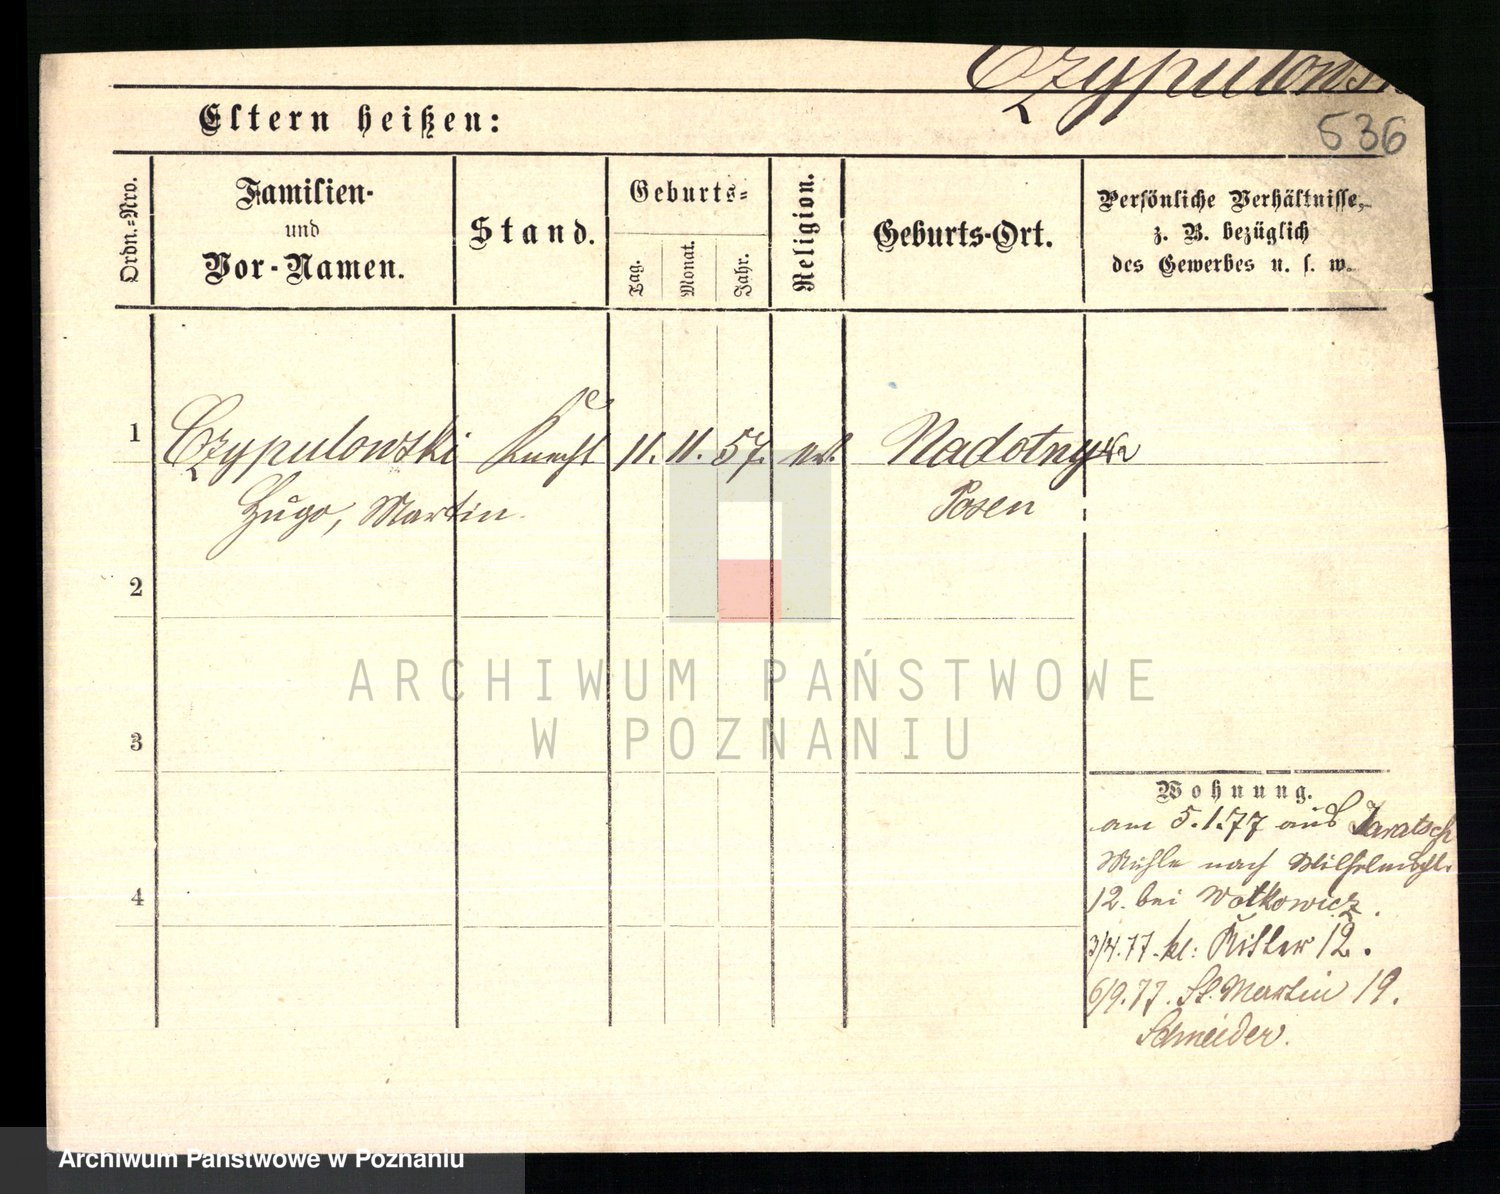 Czypulowski
536
Eltern heißen:
Ordn.-Nro.
Familien-
und
Vor-Namen.
Stand.
Geburts-
Tag.
Monat.
Jahr.
Religion.
Geburts-Ort.
Persönliche Verhältnisse,
z. B. bezüglich
des Gewerbes u. s. w.
1
Czypulowski Knecht 11. 11. 57. Nadotnyk
Hugo, Martin. Posen
2
3
4
ARCHIWUM PAŃSTWOWE
W POZNANIU
Wohnung.
am 5.1.77 aus Jaratsch
Mühle nach Wilhelmspl.
12. bei Wolkowicz.
3/4.77. kl: Ritter 12.
6/9.77. St. Martin 19.
Schneider.
Archiwum Państwowe w Poznaniu